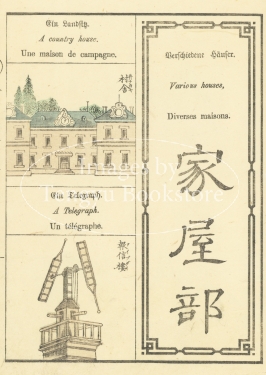 Ein Landsitz.
A country house.
Une maison de campagne.
Ein Telegraph.
A Telegraph.
Un télégraphe.
報信樓
Verschiedene Häuser.
Various houses,
Diverses maisons.
家屋部